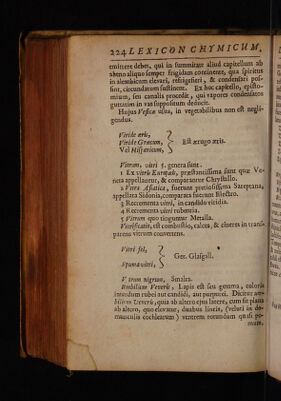 224 LEXICON CHYMICUM.
emittere debet, qui in summitate aliud capitellum ab
aheno aliquo semper frigidam continente, qua spiritus
in alembicum elevari, refrigerari, & condensari pos-
sint, circundatum sustinent. Ex hoc capitello, episto-
mium, seu canalis procedit, qui vapores condensatos
guttatim in vas suppositum deducit.
Hujus Vesicæ usus, in vegetabilibus non est negli-
gendus.
Viride æris,
Viride Græcum, Est ærugo æris.
Vel Hispanicum,
Vitrum, vitri 5. genera sunt.
1 Ex vitris Europæis, præstantissima sunt quæ Ve-
neta appellantur, & comparantur Chrystallo.
2 Vitra Asiatica, fuerunt pretiosissima Sareptana,
appellata Sidonia, comparata fuerunt Bisistro.
3 Recrementa vitri, in candido viridia.
4 Recrementa vitri rubentia.
5 Vitrum quo tinguntur Metalla.
Vitrificatio, est combustio, calces, & cineres in trans-
parens vitrum convertens.
Vitri fel,
Ger. Glasgall.
Spuma vitri,
Vitrum nigrum, Smalta.
Umbilicum Veneris, Lapis est seu gemma, coloris
interdum rubei aut candidi, aut purpurei. Dicitur um-
bilicus Veneris, quia ab altero ejus latere, cum sit plana
ab altero, quo elevatur, duabus lineis, (veluti in do-
munculis cochlearum) ventrem rotundum quasi po-
mum,